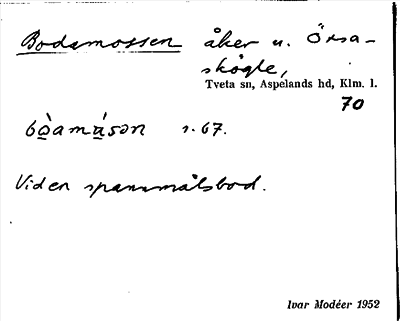 Bodamossen åker u. Örsa-
skögle,
Tveta sn, Aspelands hd, Klm. l.
70
bòamásən s. 67.
Vid en spannmålsbod.
Ivar Modéer 1952